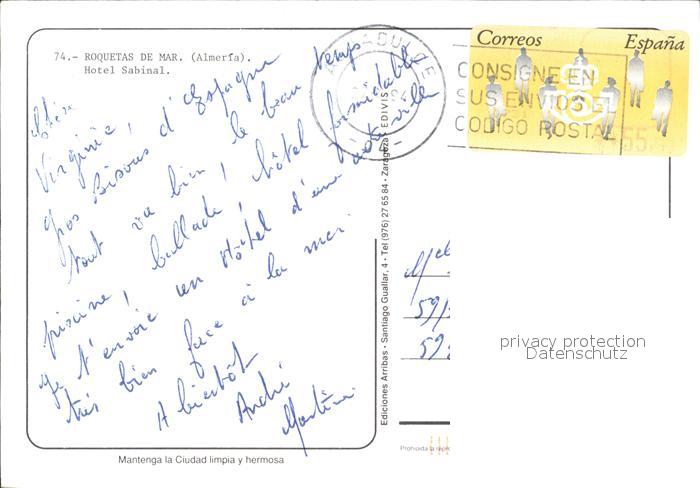 74.- ROQUETAS DE MAR. (Almería).
Hotel Sabinal.
Chère
Virginie, d'Espagne
Gros Bisous le beau temps
tout va bien, hôtel formidable
piscine, ballade, d'une autre ville
je t'envoie un Hôtel
très bien face à la mer.
A bientôt
André
Martine
Correos España
CONSIGNE EN
SUS ENVIOS EL
CODIGO POSTAL
55
Ediciones Arribas - Santiago Guallar, 4 - Tel (976) 27 65 84 - Zaragoza EDIVIS
59
59
privacy protection
Datenschutz
Prohibida la repr
Mantenga la Ciudad limpia y hermosa